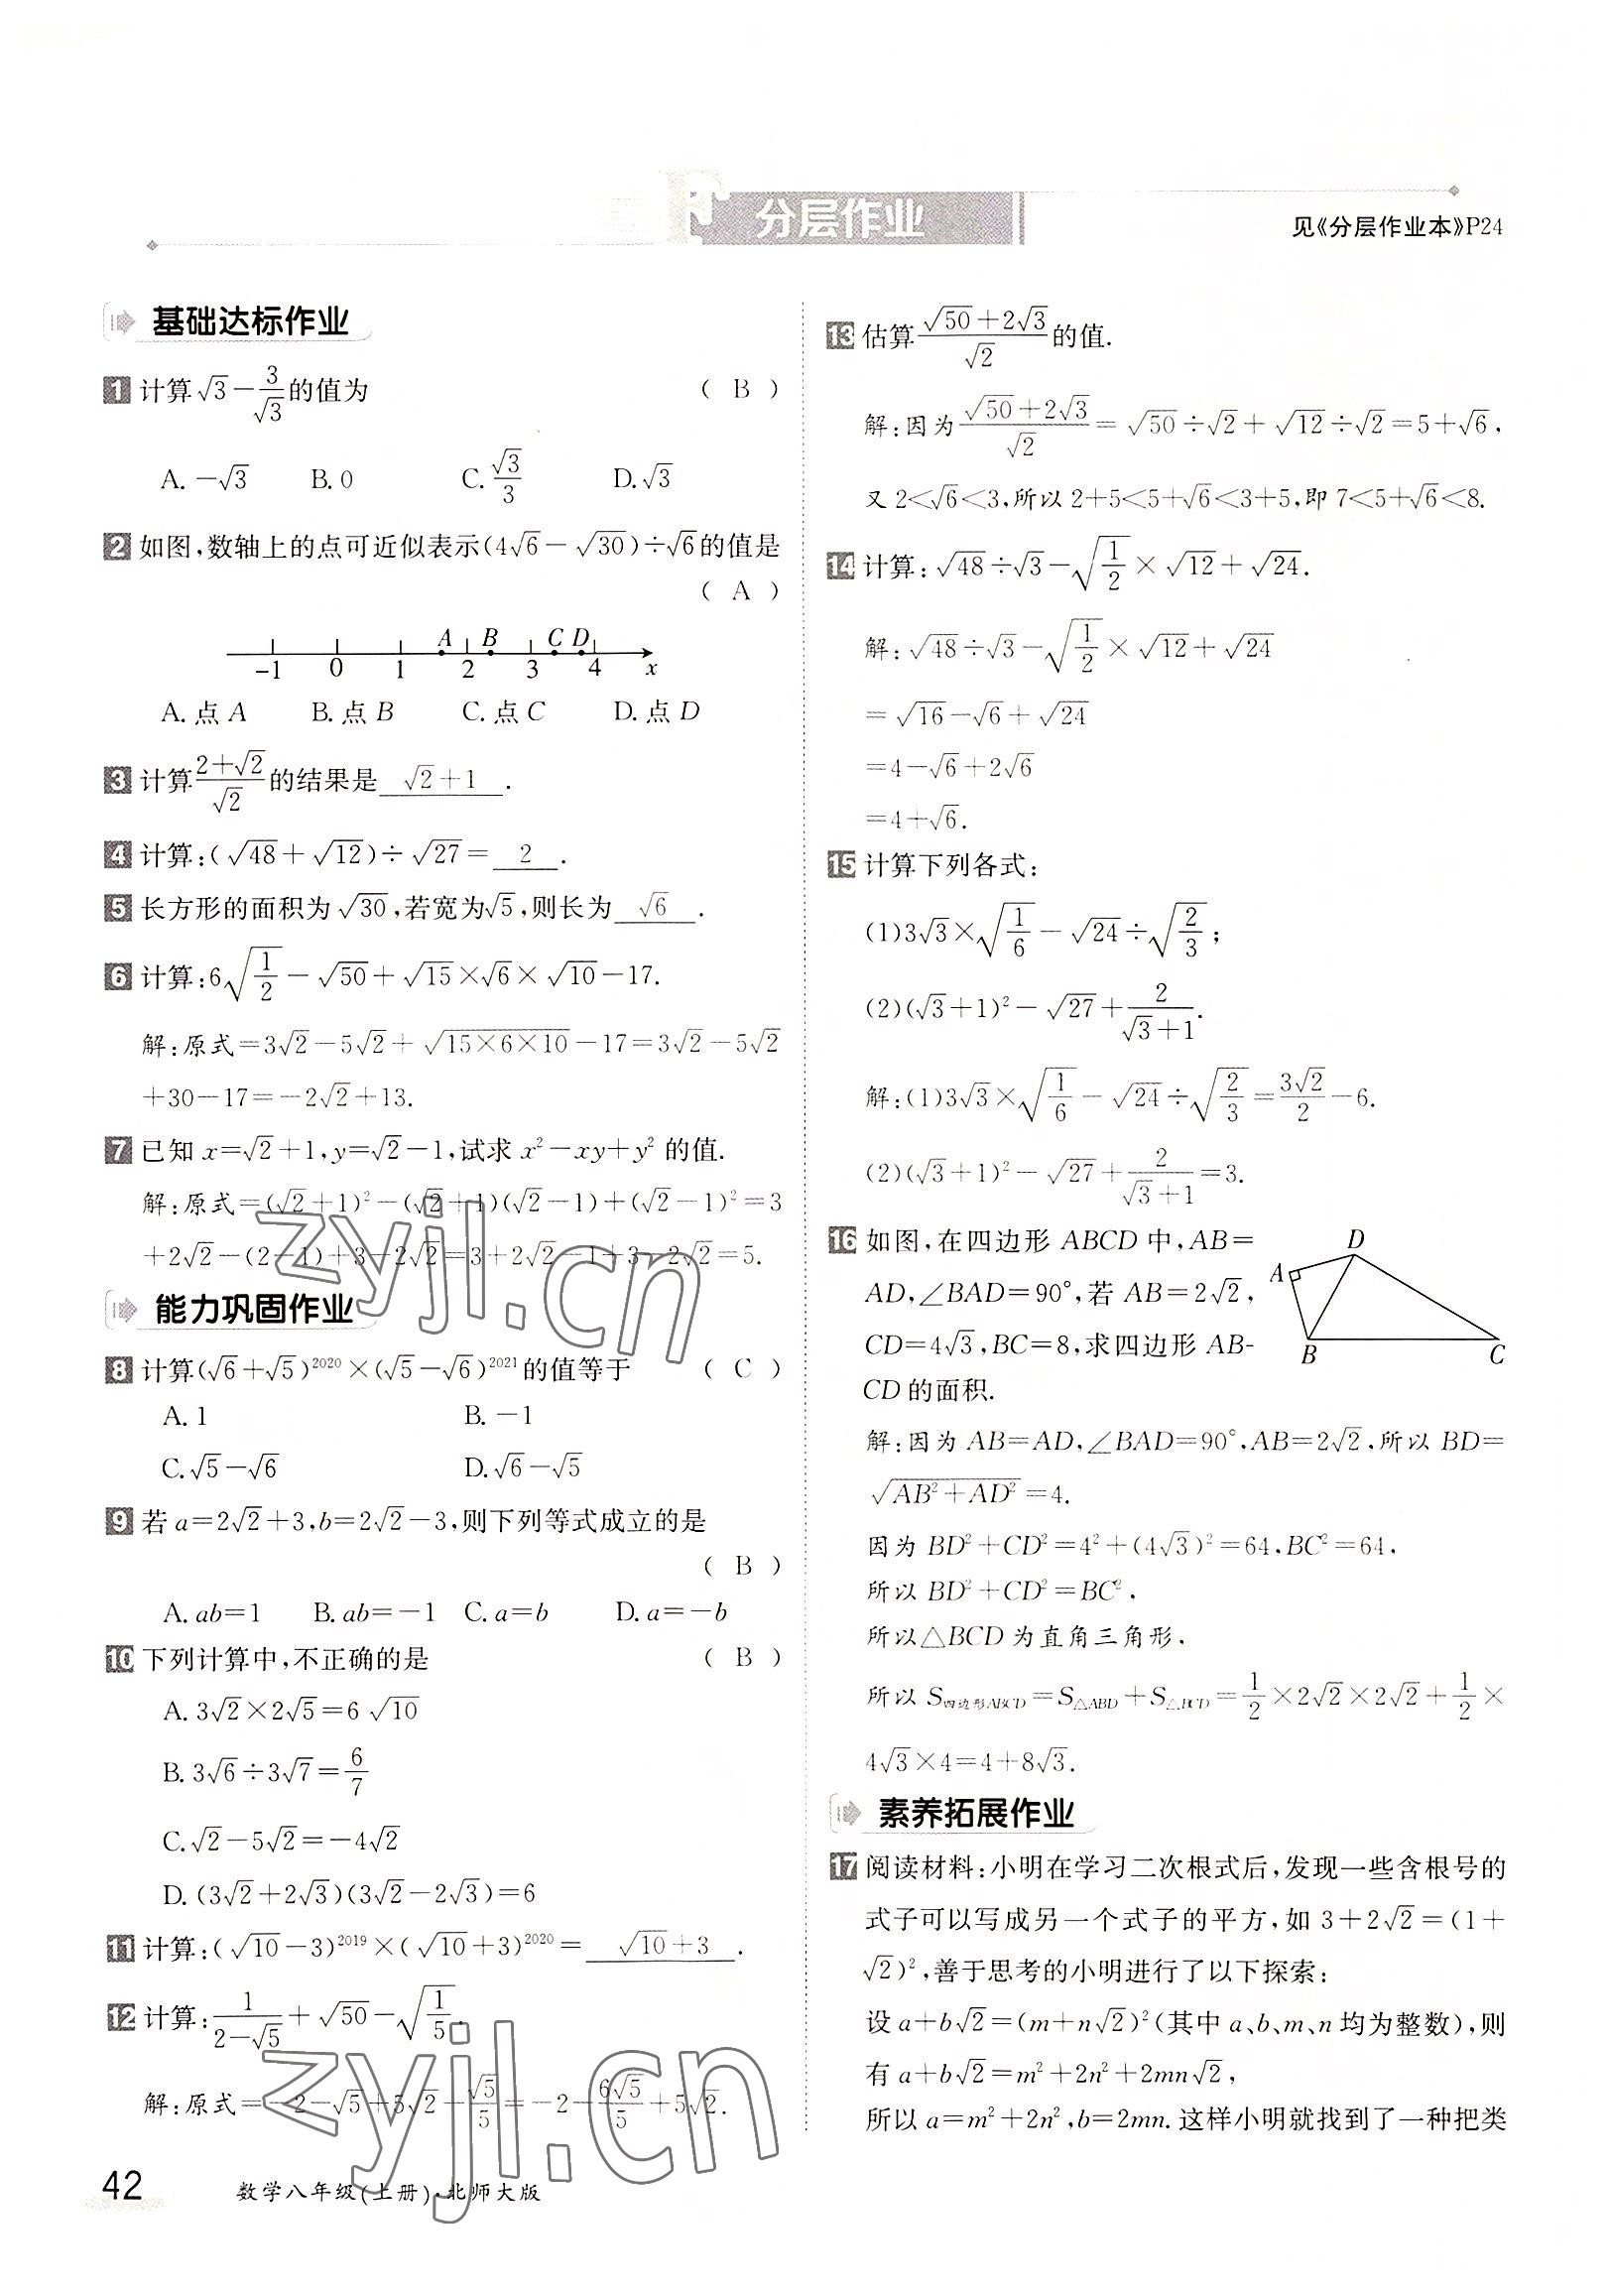 分层作业
见《分层作业本》P24
基础达标作业
1 计算√3－3/√3的值为 （ B ）
A. －√3 B. 0 C. √3/3 D. √3
2 如图,数轴上的点可近似表示(4√6－√30)÷√6的值是
（ A ）
A B C D
－1 0 1 2 3 4 x
A. 点 A B. 点 B C. 点 C D. 点 D
3 计算(2＋√2)/√2的结果是 √2＋1 .
4 计算:(√48＋√12)÷√27＝ 2 .
5 长方形的面积为√30,若宽为√5,则长为 √6 .
6 计算:6√(1/2)－√50＋√15×√6×√10－17.
解:原式＝3√2－5√2＋√(15×6×10)－17＝3√2－5√2
＋30－17＝－2√2＋13.
7 已知 x＝√2＋1,y＝√2－1,试求 x²－xy＋y² 的值.
解:原式＝(√2＋1)²－(√2＋1)(√2－1)＋(√2－1)²＝3
＋2√2－(2－1)＋3－2√2＝3＋2√2－1＋3－2√2＝5.
能力巩固作业
8 计算(√6＋√5)²⁰²⁰×(√5－√6)²⁰²¹的值等于 （ C ）
A. 1 B. －1
C. √5－√6 D. √6－√5
9 若 a＝2√2＋3,b＝2√2－3,则下列等式成立的是
（ B ）
A. ab＝1 B. ab＝－1 C. a＝b D. a＝－b
10 下列计算中,不正确的是 （ B ）
A. 3√2×2√5＝6√10
B. 3√6÷3√7＝6/7
C. √2－5√2＝－4√2
D. (3√2＋2√3)(3√2－2√3)＝6
11 计算:(√10－3)²⁰¹⁹×(√10＋3)²⁰²⁰＝ √10＋3 .
12 计算:1/(2－√5)＋√50－√(1/5).
解:原式＝－2－√5＋5√2－√5/5＝－2－6√5/5＋5√2.
42
数学八年级(上册)·北师大版
13 估算(√50＋2√3)/√2的值.
解:因为(√50＋2√3)/√2＝√50÷√2＋√12÷√2＝5＋√6,
又 2＜√6＜3,所以 2＋5＜5＋√6＜3＋5,即 7＜5＋√6＜8.
14 计算:√48÷√3－√(1/2)×√12＋√24.
解:√48÷√3－√(1/2)×√12＋√24
＝√16－√6＋√24
＝4－√6＋2√6
＝4＋√6.
15 计算下列各式:
(1)3√3×√(1/6)－√24÷√(2/3);
(2)(√3＋1)²－√27＋2/(√3＋1).
解:(1)3√3×√(1/6)－√24÷√(2/3)＝3√2/2－6.
(2)(√3＋1)²－√27＋2/(√3＋1)＝3.
16 如图,在四边形 ABCD 中,AB＝
AD,∠BAD＝90°,若 AB＝2√2,
CD＝4√3,BC＝8,求四边形 AB-
CD 的面积.
D
A
B C
解:因为 AB＝AD,∠BAD＝90°,AB＝2√2,所以 BD＝
√(AB²＋AD²)＝4.
因为 BD²＋CD²＝4²＋(4√3)²＝64,BC²＝64,
所以 BD²＋CD²＝BC².
所以△BCD 为直角三角形.
所以 S四边形ABCD＝S△ABD＋S△BCD＝1/2×2√2×2√2＋1/2×
4√3×4＝4＋8√3.
素养拓展作业
17 阅读材料:小明在学习二次根式后,发现一些含根号的
式子可以写成另一个式子的平方,如 3＋2√2＝(1＋
√2)²,善于思考的小明进行了以下探索:
设 a＋b√2＝(m＋n√2)²(其中 a、b、m、n 均为整数),则
有 a＋b√2＝m²＋2n²＋2mn√2,
所以 a＝m²＋2n²,b＝2mn. 这样小明就找到了一种把类
zyjl.cn
zyjl.cn